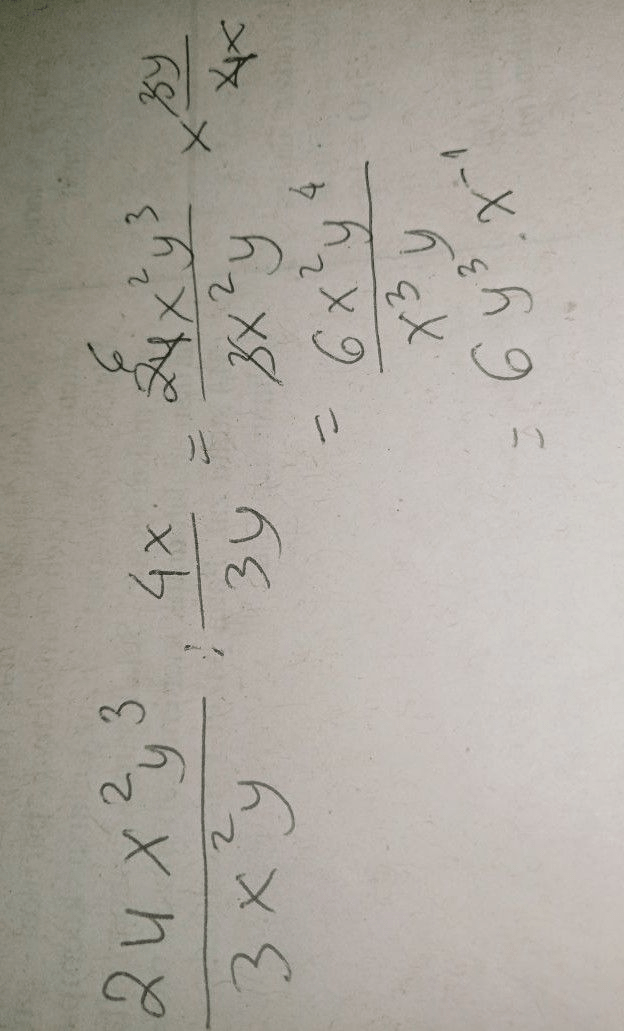 24x²y³/3x²y : 4x/3y = 24x²y³/3x²y × 3y/4x
6
= 6x²y⁴/x³y
= 6y³.x⁻¹